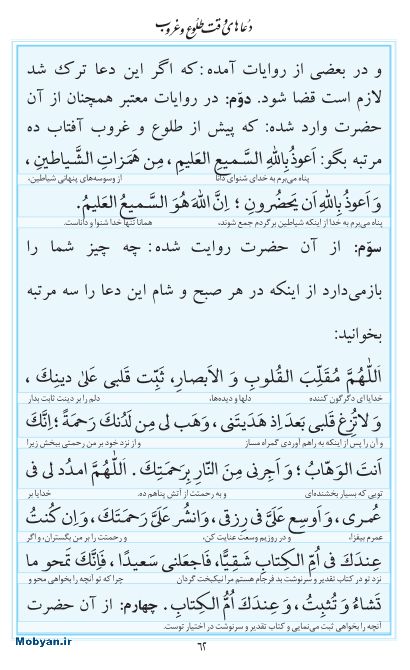 دعاهای وقت طلوع و غروب
و در بعضی از روایات آمده: که اگر این دعا ترک شد
لازم است قضا شود. دوّم: در روایات معتبر همچنان از آن
حضرت وارد شده: که پیش از طلوع و غروب آفتاب ده
مرتبه بگو: اَعوذُ بِاللهِ السَّمیعِ العَلیمِ، مِن هَمَزاتِ الشَّیاطینِ،
پناه می‌برم به خدای شنوای دانا از وسوسه‌های پنهانی شیاطین،
وَ اَعوذُ بِاللهِ اَن یَحضُرونِ؛ اِنَّ اللهَ هُوَ السَّمیعُ العَلیمُ.
پناه می‌برم به خدا از اینکه شیاطین بر گردم جمع شوند، همانا تنها خدا شنوا و داناست.
سوّم: از آن حضرت روایت شده: چه چیز شما را
بازمی‌دارد از اینکه در هر صبح و شام این دعا را سه مرتبه
بخوانید:
اَللّٰهُمَّ مُقَلِّبَ القُلوبِ وَ الاَبصارِ، ثَبِّت قَلبی عَلیٰ دینِکَ،
خدایا ای دگرگون کننده دلها و دیده‌ها، دلم را بر دینت ثابت بدار
وَ لاتُزِغ قَلبی بَعدَ اِذ هَدَیتَنی، وَ هَب لی مِن لَدُنکَ رَحمَةً؛ اِنَّکَ
و آن را پس از اینکه به راهم آوردی گمراه مساز و از نزد خود بر من رحمتی ببخش زیرا
اَنتَ الوَهّابُ؛ وَ اَجِرنی مِنَ النّارِ بِرَحمَتِکَ. اَللّٰهُمَّ امدُد لی فی
تویی که بسیار بخشنده‌ای و به رحمتت از آتش پناهم ده. خدایا بر
عُمری، وَ اَوسِع عَلَیَّ فی رِزقی، وَ انشُر عَلَیَّ رَحمَتَکَ، وَ اِن کُنتُ
عمرم بیفزا، و در روزیم وسعت عنایت کن، و رحمتت را بر من بگستران، و اگر
عِندَکَ فی اُمِّ الکِتابِ شَقِیًّا، فَاجعَلنی سَعیدًا، فَاِنَّکَ تَمحو ما
نزد تو در کتاب تقدیر و سرنوشت بد فرجام هستم مرا نیکبخت گردان چرا که تو آنچه را بخواهی محو و
تَشاءُ وَ تُثبِتُ، وَ عِندَکَ اُمُّ الکِتابِ. چهارم: از آن حضرت
آنچه را بخواهی ثبت می‌نمایی و کتاب تقدیر و سرنوشت در اختیار توست.
۶۲
Mobyan.ir